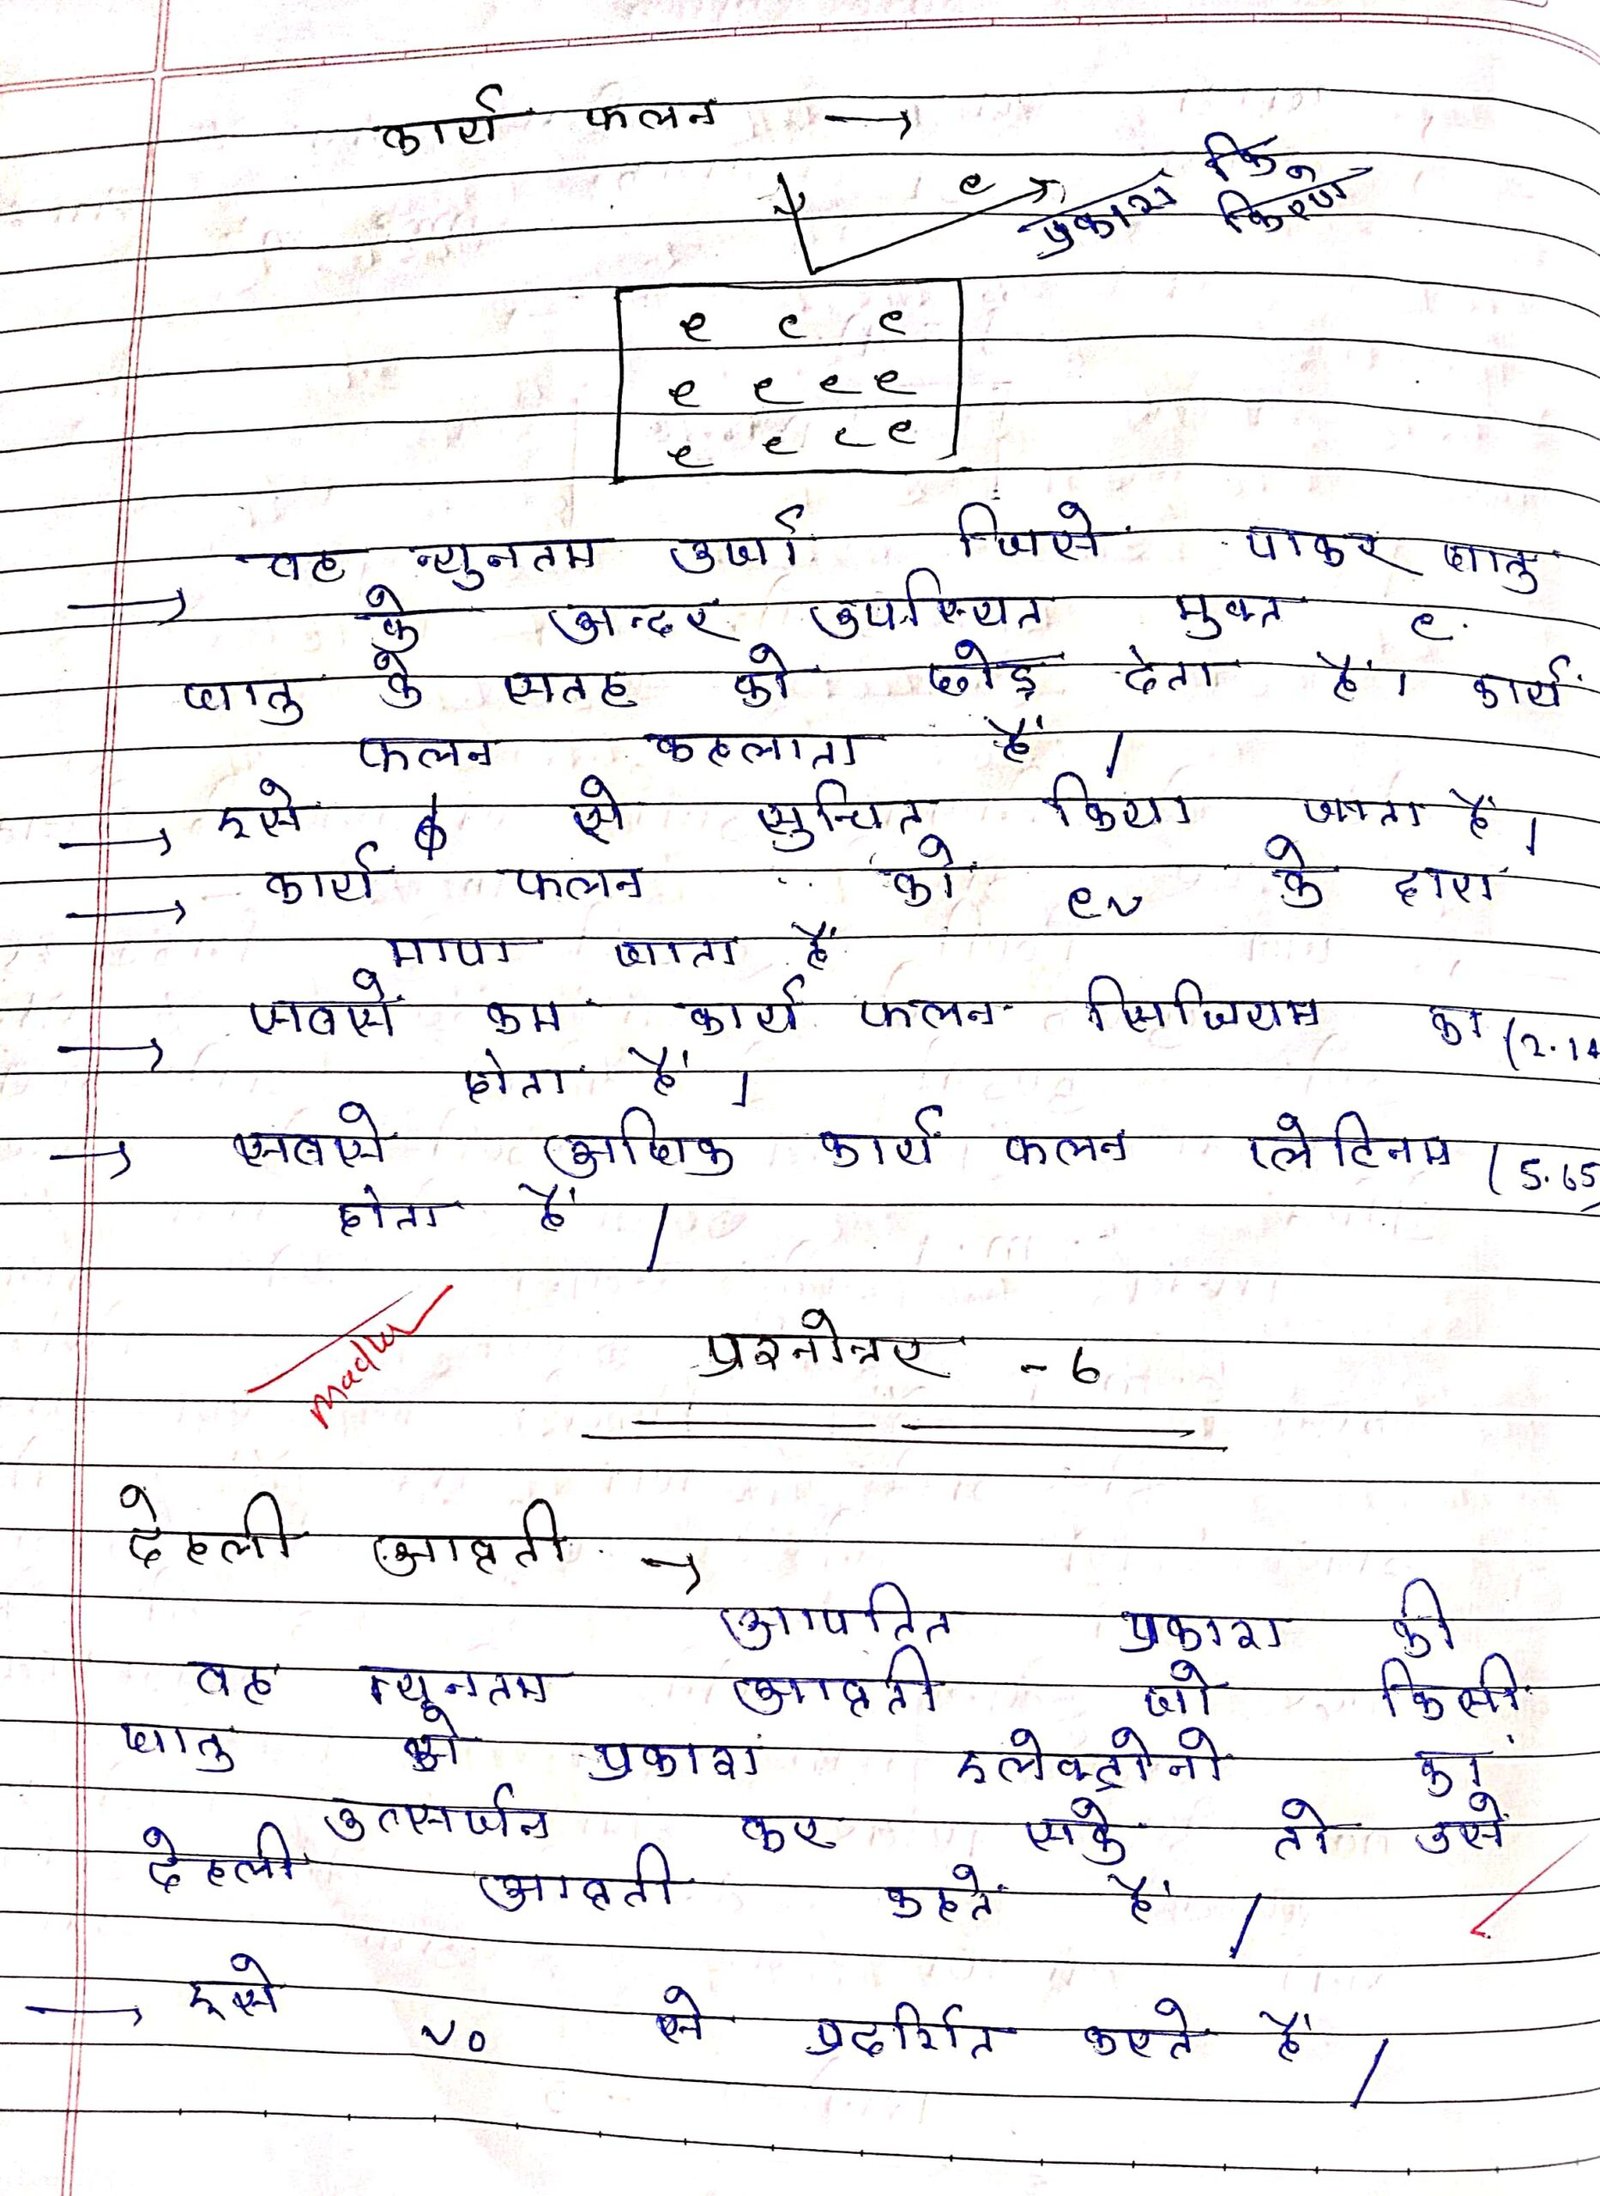 कार्य फलन →
e प्रकाश किरण
e e e
e e e e
e e e e
वह न्युनतम उर्जा जिसे पाकर धातु
→ के अन्दर उपस्थित मुक्त e
धातु के सतह को छोड़ देता हैं। कार्य
फलन कहलाता हैं।
→ इसे ϕ से सुचित किया जाता हैं।
→ कार्य फलन को ev के द्वारा
मापा जाता हैं
→ सबसे कम कार्य फलन सिजियम का (2.14
होता हैं।
→ सबसे अधिक कार्य फलन प्लेटिनम (5.65)
होता हैं।
madhu
प्रश्नोत्तर - 6
देहली आवृती →
आपतित प्रकाश की
वह न्यूनतम आवृती जो किसी
धातु से प्रकाश इलेक्ट्रोनो का
उत्सर्जन कर सके तो उसे
देहली आवृती कहते हैं।
→ इसे ν0 से प्रदर्शित करते हैं।